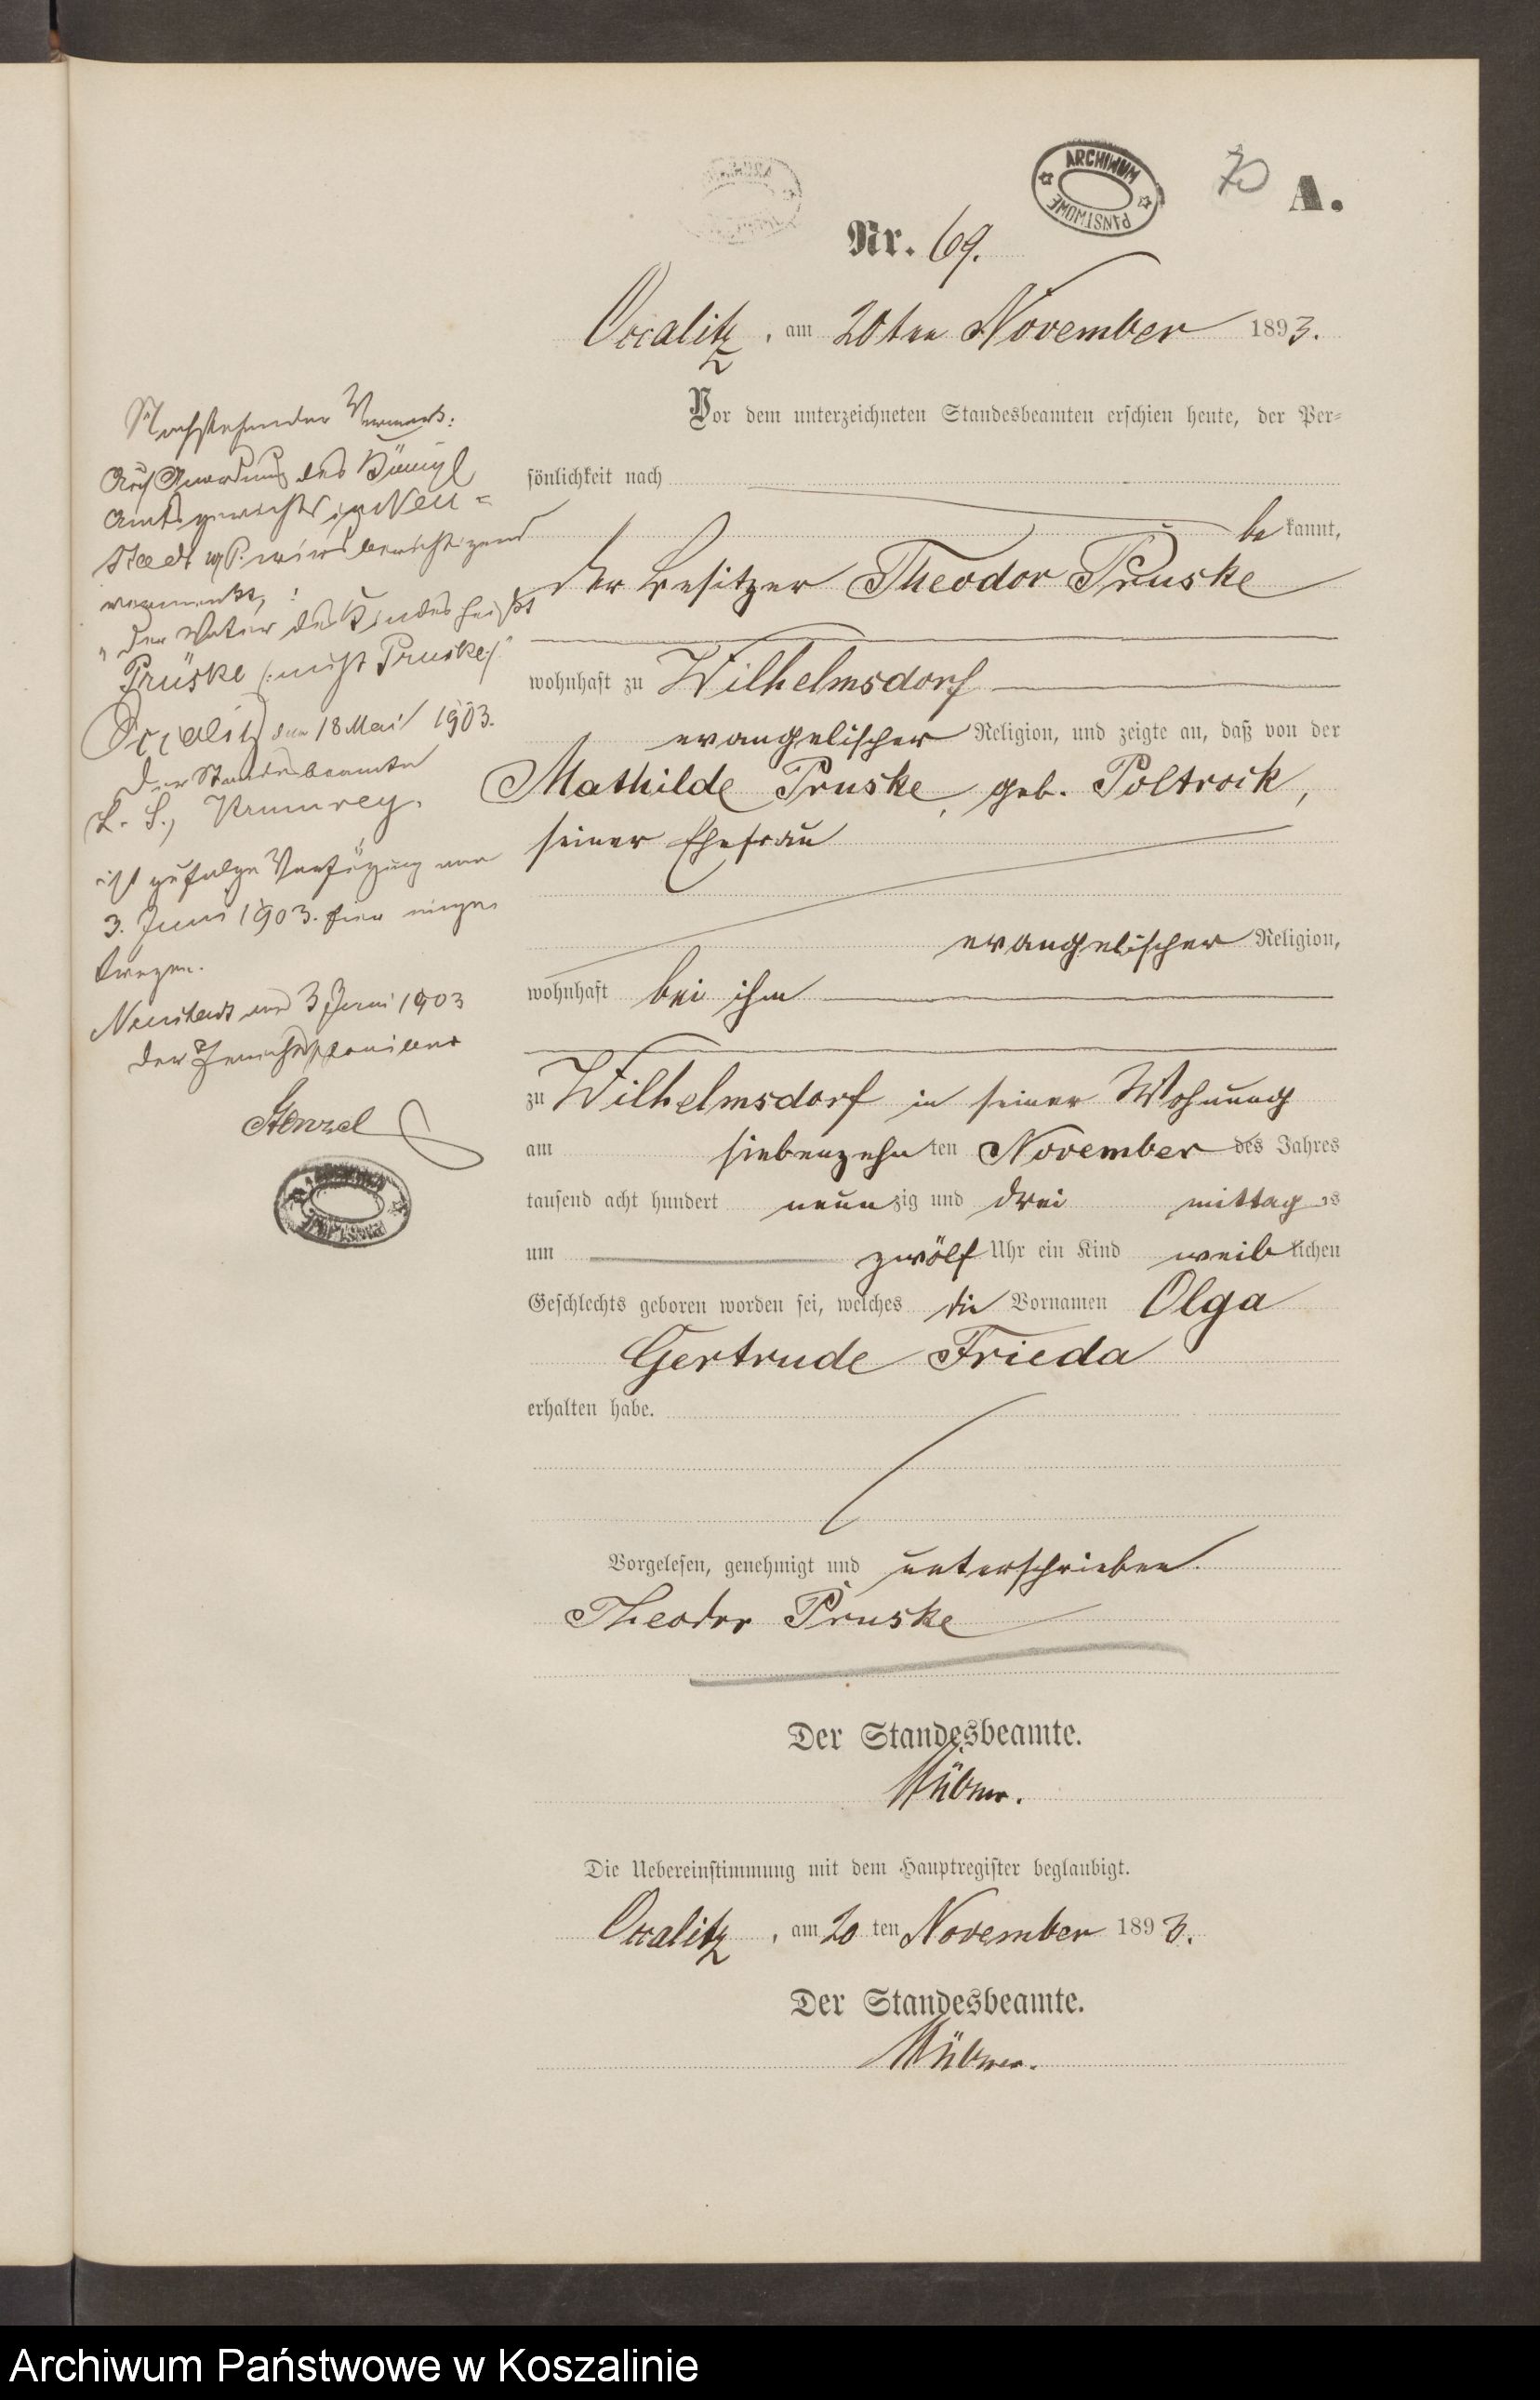 ARCHIWUM
PAŃSTWOWE
70
A.
Nr. 69.
Occalitz, am 20ten November 1893.
Vor dem unterzeichneten Standesbeamten erschien heute, der Per-
sönlichkeit nach
bekannt,
der Besitzer Theodor Pruske
wohnhaft zu Wilhelmsdorf
evangelischer Religion, und zeigte an, daß von der
Mathilde Pruske, geb. Poltrock,
seiner Ehefrau
evangelischer Religion,
wohnhaft bei ihm
zu Wilhelmsdorf in seiner Wohnung
am siebenzehnten November des Jahres
tausend acht hundert neunzig und drei mittags
um zwölf Uhr ein Kind weiblichen
Geschlechts geboren worden sei, welches die Vornamen Olga
Gertrude Frieda
erhalten habe.
Vorgelesen, genehmigt und unterschrieben.
Theodor Pruske
Der Standesbeamte.
Die Uebereinstimmung mit dem Hauptregister beglaubigt.
Occalitz, am 20ten November 1893.
Der Standesbeamte.
Nachstehender Vermerk:
Auf Anordnung des Königl
Amtsgerichts in Neu-
stadt W/P. wird berichtigend
vermerkt, :
"Der Vater des Kindes heißt
Prüske (: nicht Pruske :)"
Occalitz den 18 Mai 1903.
Der Standesbeamte
L. S.,
ist zufolge Verfügung vom
3. Juni 1903. hier einge-
tragen.
Neustadt den 3 Juni 1903
Der Gerichtsschreiber
Stenzel
Archiwum Państwowe w Koszalinie